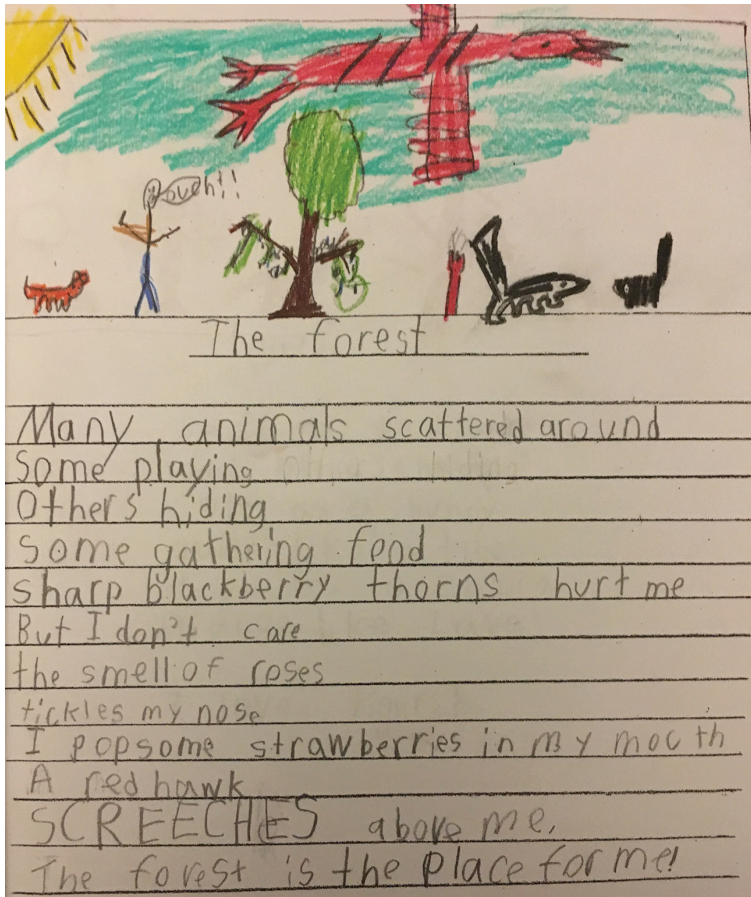 Ouch!!
The forest
Many animals scattered around
some playing
Others hiding
some gathering food
sharp blackberry thorns hurt me
But I don't care
the smell of roses
tickles my nose
I pop some strawberries in my mouth
A red hawk
SCREECHES above me.
The forest is the place for me!